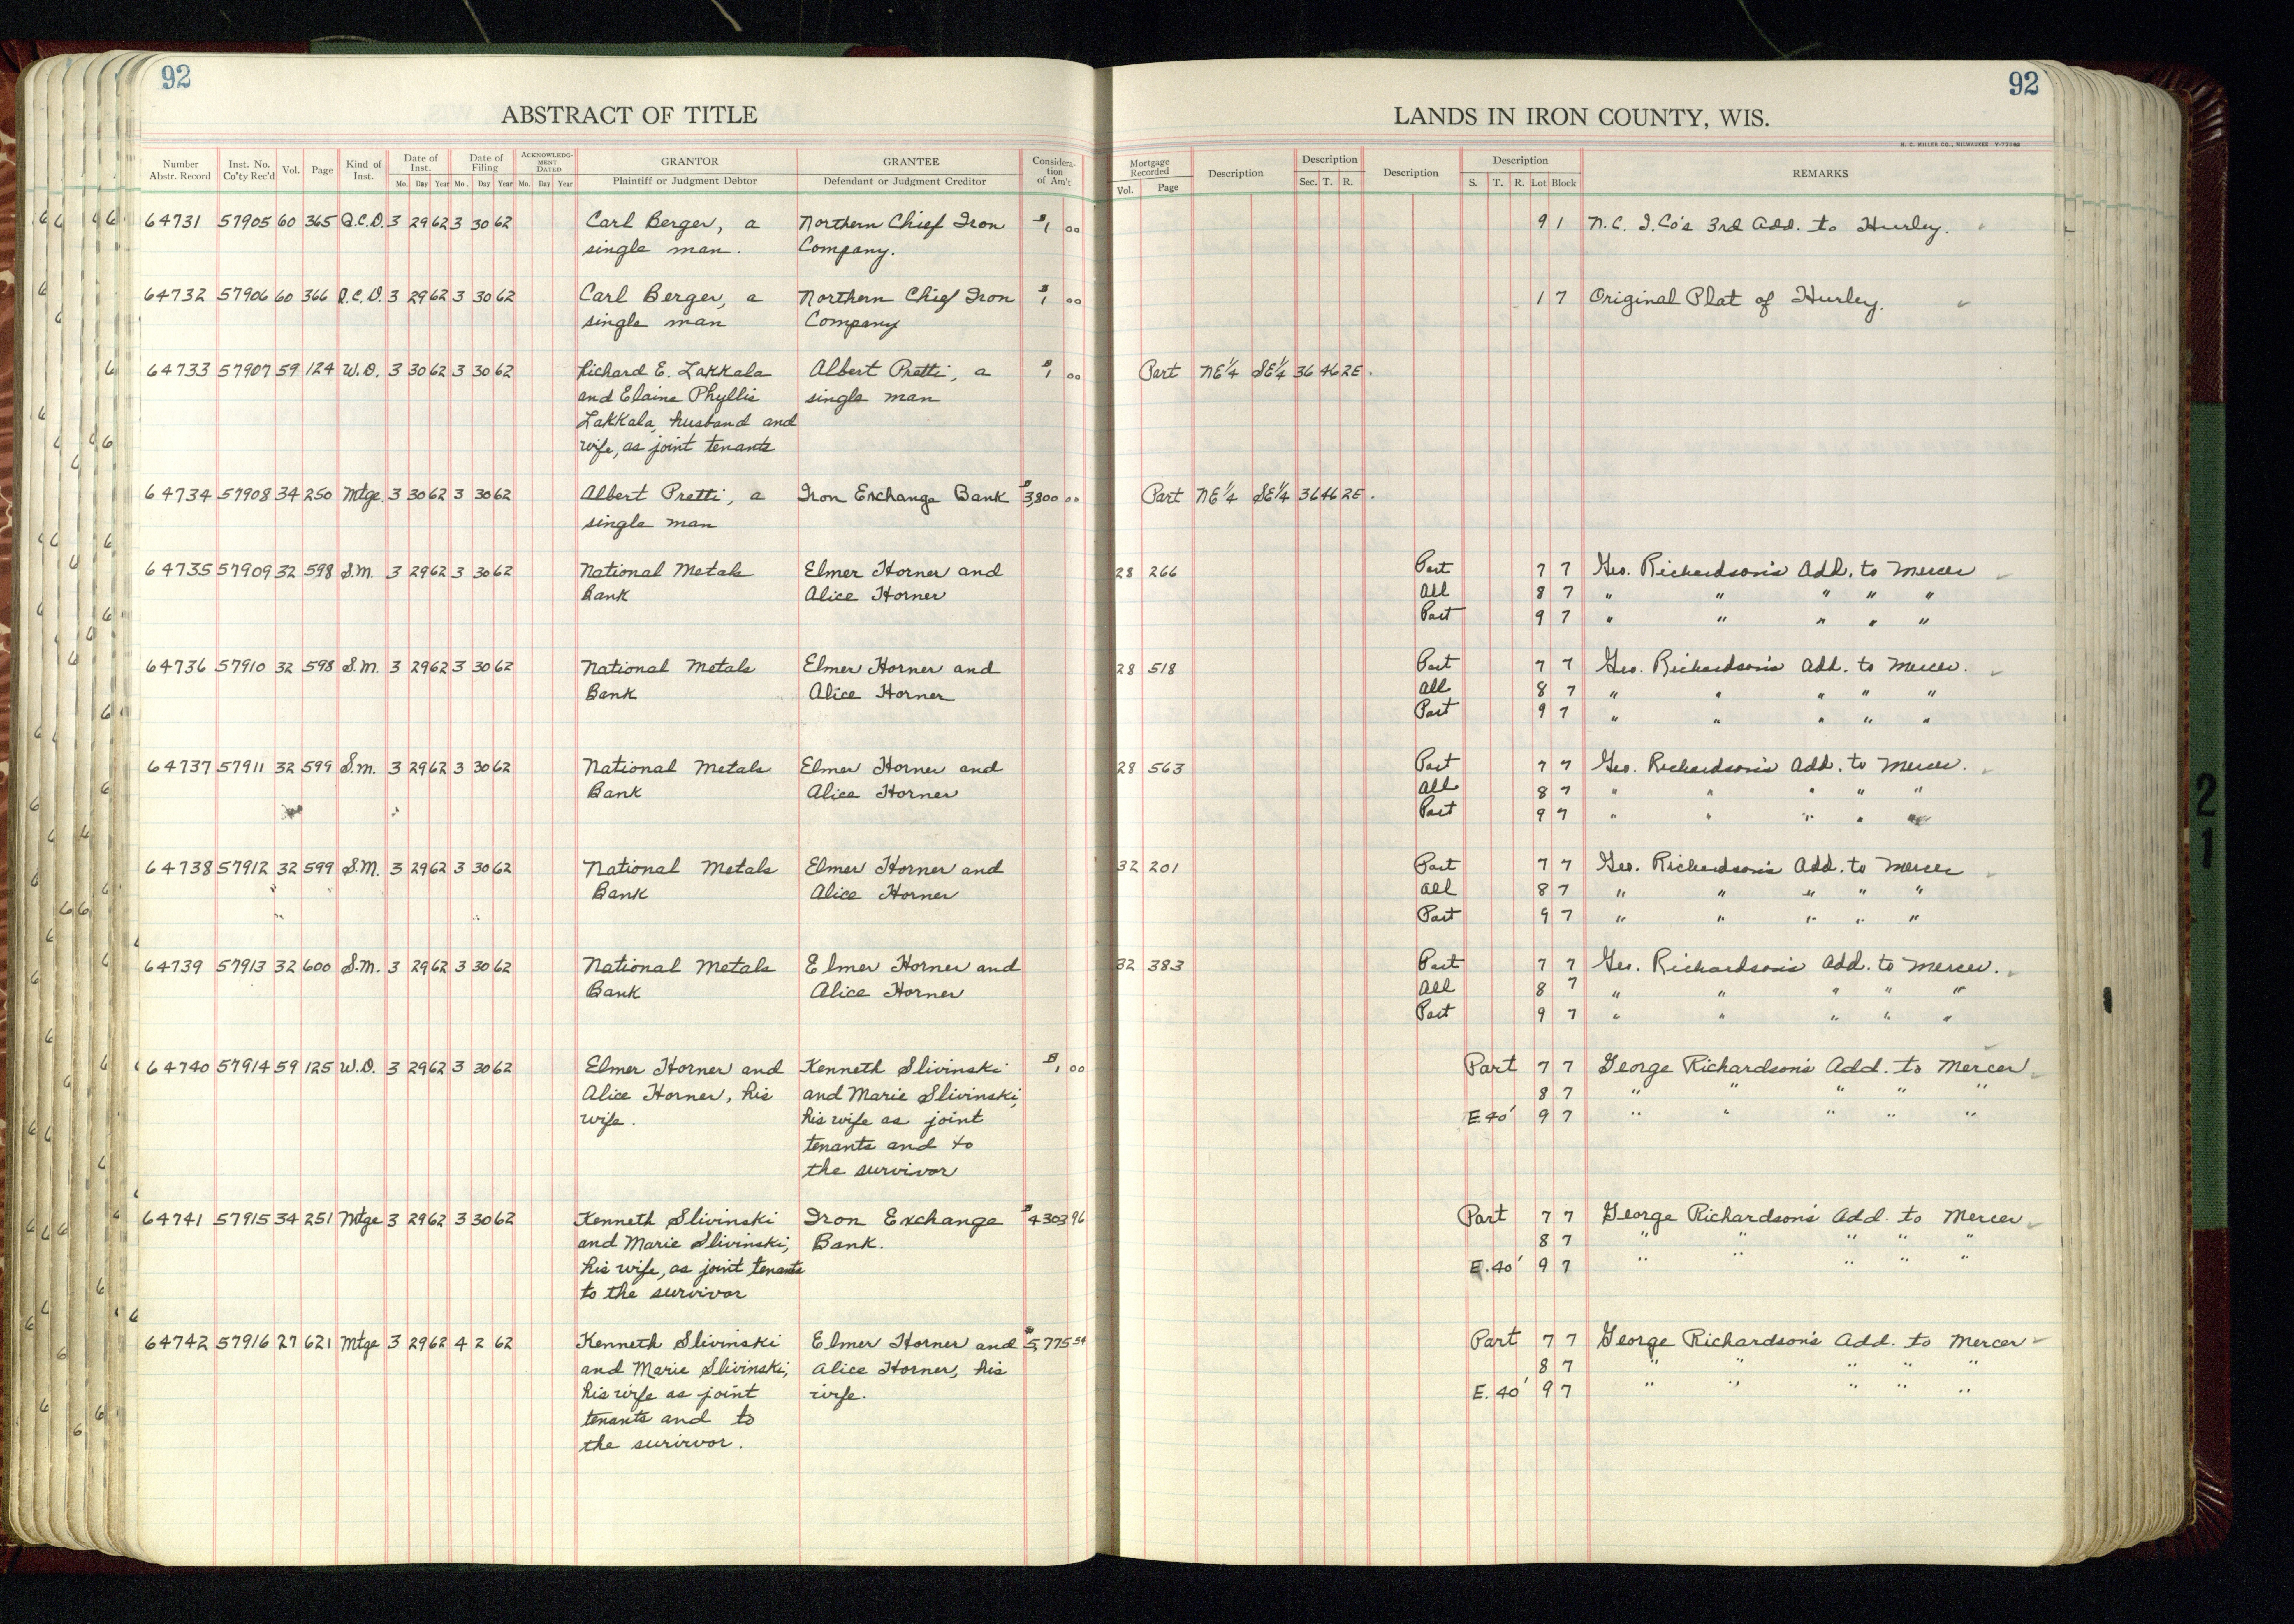 92
92
ABSTRACT OF TITLE
LANDS IN IRON COUNTY, WIS.
H. C. MILLER CO., MILWAUKEE
Number Abstr. Record
Inst. No. Co'ty Rec'd
Vol.
Page
Kind of Inst.
Date of Inst.
Mo. Day Year
Date of Filing
Mo. Day Year
ACKNOWLEDGMENT DATED
Mo. Day Year
GRANTOR
Plaintiff or Judgment Debtor
GRANTEE
Defendant or Judgment Creditor
Consideration of Am't
Mortgage Recorded
Vol. Page
Description
Description
Sec. T. R.
Description
Description
S. T. R. Lot Block
REMARKS
64731 57905 60 365 Q.C.D. 3 29 62 3 30 62 Carl Berger, a Northern Chief Iron $1 00 9 1 N.C. I.Co's 3rd Add. to Hurley.
single man. Company.
64732 57906 60 366 Q.C.D. 3 29 62 3 30 62 Carl Berger, a Northern Chief Iron $1 00 1 7 Original Plat of Hurley.
single man Company
64733 57907 59 124 W.D. 3 30 62 3 30 62 Richard E. Lakkala Albert Pretti, a $1 00 Part NE¼ SE¼ 36 46 2E.
and Elaine Phyllis single man
Lakkala, husband and
wife, as joint tenants
64734 57908 34 250 Mtge. 3 30 62 3 30 62 Albert Pretti, a Iron Exchange Bank $3,800 00 Part NE¼ SE¼ 36 46 2E.
single man
64735 57909 32 598 S.M. 3 29 62 3 30 62 National Metals Elmer Horner and 28 266 Part 7 7 Geo. Richardson's Add. to Mercer
Bank Alice Horner All 8 7 " " " " "
Part 9 7 " " " " "
64736 57910 32 598 S.M. 3 29 62 3 30 62 National Metals Elmer Horner and 28 518 Part 7 7 Geo. Richardson's Add. to Mercer.
Bank Alice Horner All 8 7 " " " " "
Part 9 7 " " " " "
64737 57911 32 599 S.M. 3 29 62 3 30 62 National Metals Elmer Horner and 28 563 Part 7 7 Geo. Richardson's Add. to Mercer.
Bank Alice Horner All 8 7 " " " " "
Part 9 7 " " " " "
64738 57912 32 599 S.M. 3 29 62 3 30 62 National Metals Elmer Horner and 32 201 Part 7 7 Geo. Richardson's Add. to Mercer
Bank Alice Horner All 8 7 " " " " "
Part 9 7 " " " " "
64739 57913 32 600 S.M. 3 29 62 3 30 62 National Metals Elmer Horner and 32 383 Part 7 7 Geo. Richardson's Add. to Mercer.
Bank Alice Horner All 8 7 " " " " "
Part 9 7 " " " " "
64740 57914 59 125 W.D. 3 29 62 3 30 62 Elmer Horner and Kenneth Slivinski $1 00 Part 7 7 George Richardson's Add. to Mercer
Alice Horner, his and Marie Slivinski, 8 7 " " " " "
wife. his wife as joint E.40' 9 7 " " " " "
tenants and to
the survivor
64741 57915 34 251 Mtge 3 29 62 3 30 62 Kenneth Slivinski Iron Exchange $4303 96 Part 7 7 George Richardson's Add. to Mercer
and Marie Slivinski, Bank. 8 7 " " " " "
his wife, as joint tenants E.40' 9 7 " " " " "
to the survivor
64742 57916 27 621 Mtge 3 29 62 4 2 62 Kenneth Slivinski Elmer Horner and $5,775 54 Part 7 7 George Richardson's Add. to Mercer
and Marie Slivinski, Alice Horner, his 8 7 " " " " "
his wife as joint wife. E.40' 9 7 " " " " "
tenants and to
the survivor.
21